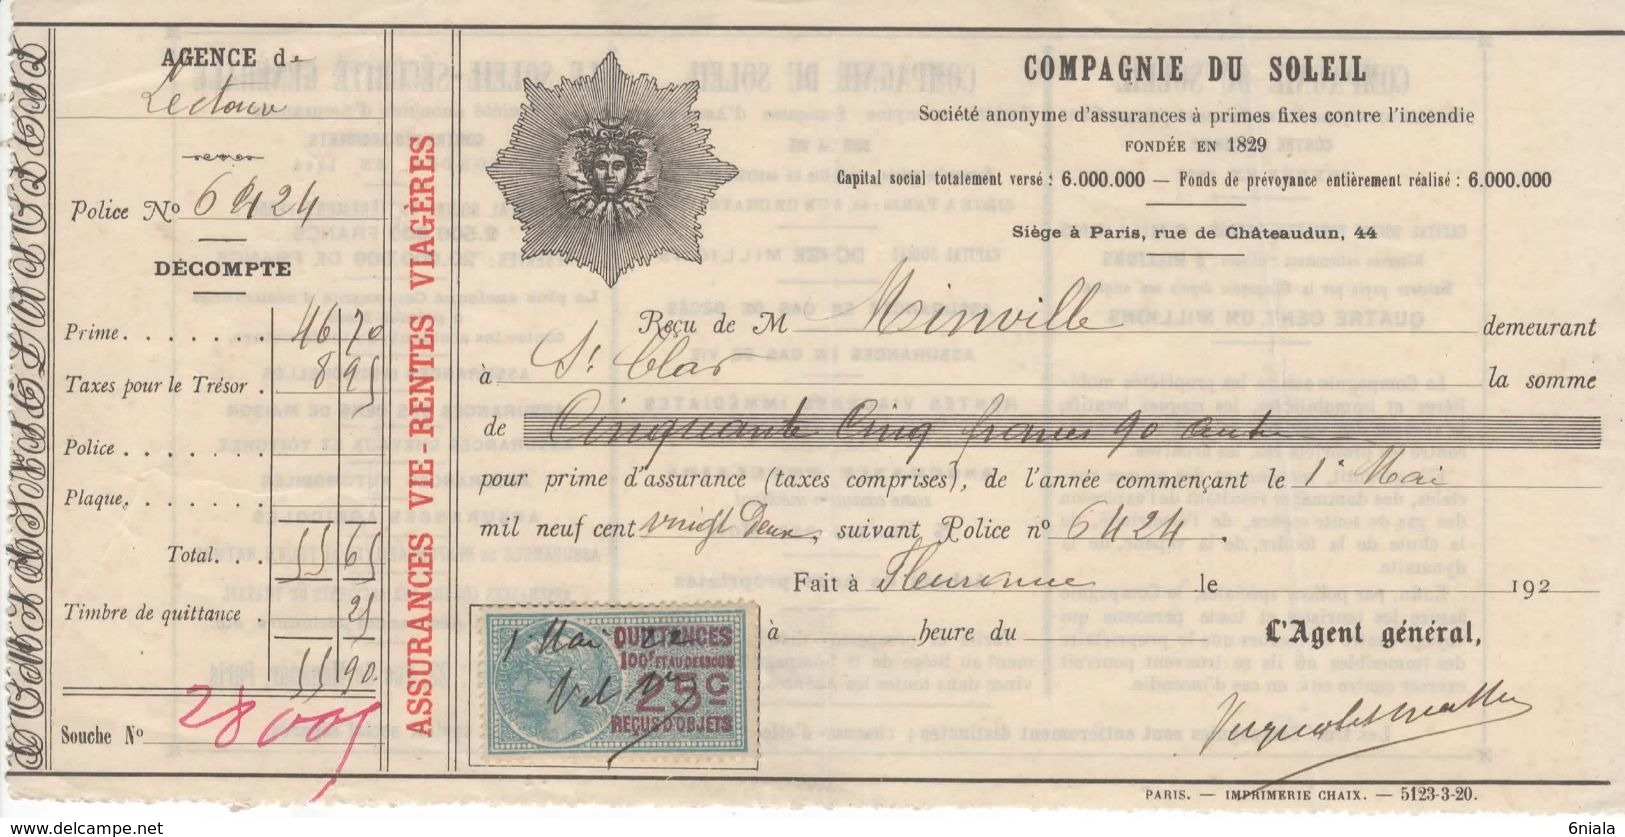 AGENCE de
Lectoure
Police No 6424
DÉCOMPTE
Prime........ 46 70
Taxes pour le Trésor . 8 95
Police........
Plaque........
Total... 55 65
Timbre de quittance . 25
55 90
Souche No 28005
ASSURANCES VIE-RENTES VIAGÈRES
COMPAGNIE DU SOLEIL
Société anonyme d'assurances à primes fixes contre l'incendie
FONDÉE EN 1829
Capital social totalement versé : 6.000.000 — Fonds de prévoyance entièrement réalisé : 6.000.000
Siège à Paris, rue de Châteaudun, 44
Reçu de M Minville demeurant
à St Clar la somme
de Cinquante Cinq francs 90 cent
pour prime d'assurance (taxes comprises), de l'année commençant le 1er Mai
mil neuf cent vingt Deux, suivant Police no 6424.
Fait à Fleurance le 192
à heure du L'Agent général,
1 Mai 22
QUITTANCES
100F ET AU DESSOUS
25c
REÇUS D'OBJETS
PARIS. — IMPRIMERIE CHAIX. — 5123-3-20.
6niala